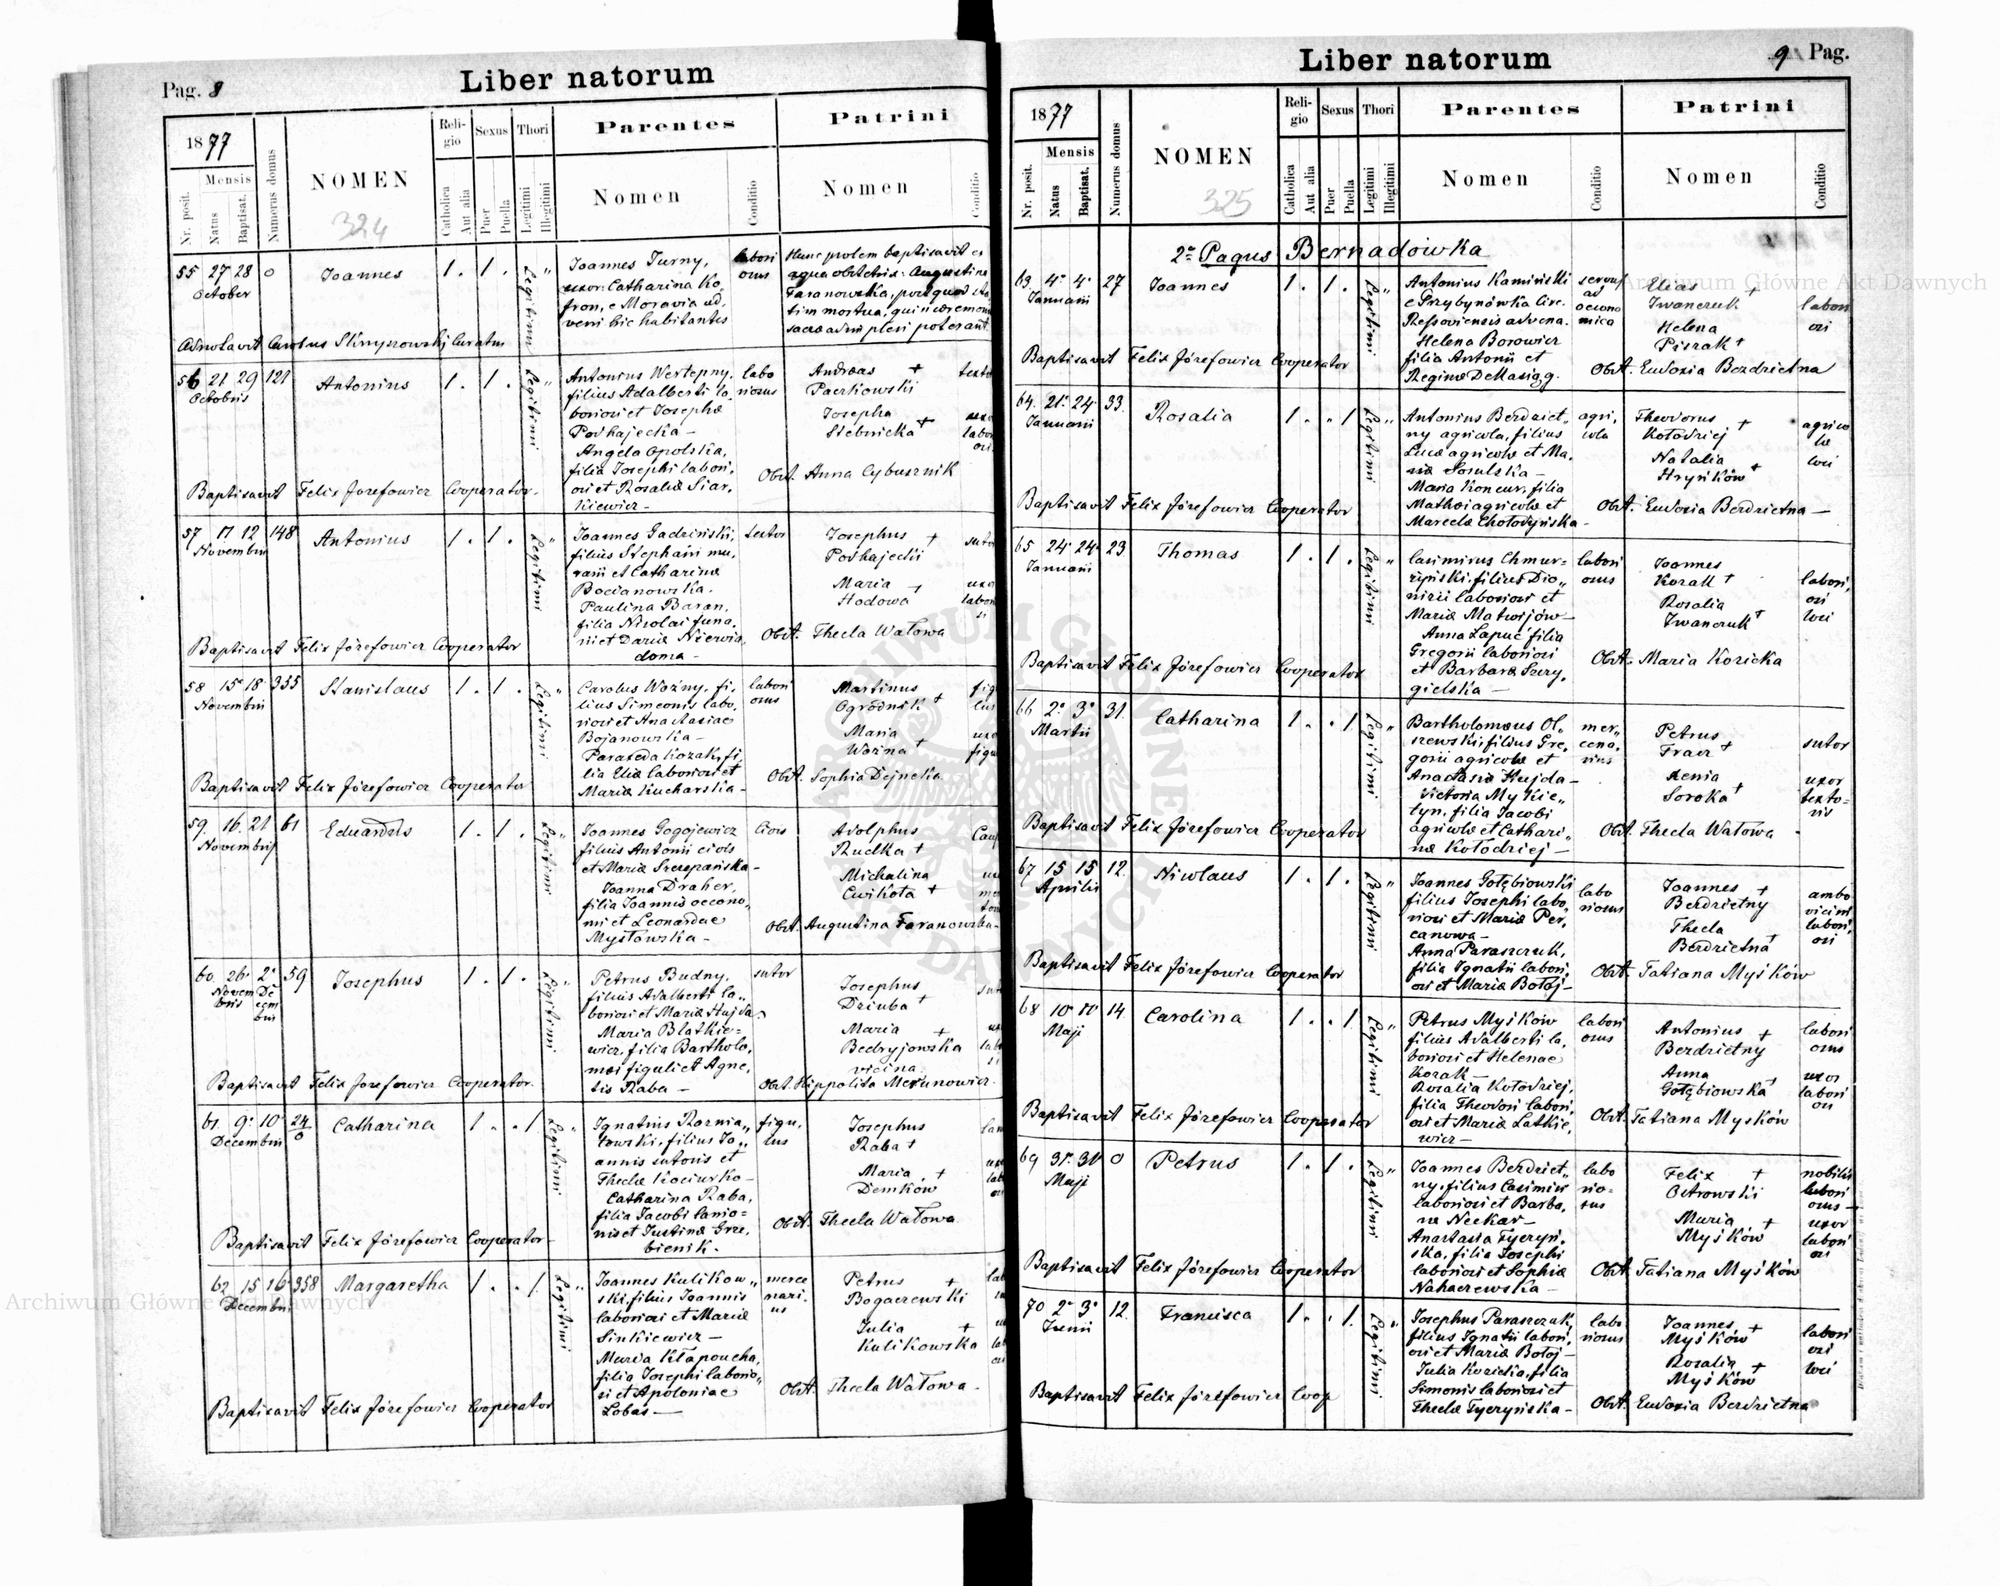 Pag. 8
Liber natorum
1877
Mensis
Nr. posit.
Natus
Baptisat.
Numerus domus
NOMEN
324
Religio
Catholica
Aut alia
Sexus
Puer
Puella
Thori
Legitimi
Illegitimi
Parentes
Nomen
Conditio
Patrini
Nomen
Conditio
55 27 28 0 Joannes 1 . 1 . Legitimi "
October
Joannes Turny,
uxor: Catharina Ko,
fron, e Moravia ad,
veni hic habitantes
labori
osus
Hunc prolem baptisavit ex
aqua obstetrix: Augustina
Faranowska, postquam sta
tim mortua, quin ceremon
sacra adimpleri poterant.
Carolus Curatus
56 21 29 121 Antonius 1 . 1 . Legitimi "
Octobris
Antonius Wertepny,
filius Adalberti la,
boriosi et Josephæ
Podhajecka —
Angela Opolska,
filia Josephi labori,
osi et Rosaliæ Siar,
kiewicz —
labo
riosus
Andreas +
Paczkowski
Josepha
Stebnicka +
texto
uxor
labor
osi.
Obst. Anna Cybusznik
Baptisavit Felix Józefowicz Cooperator.
57 11 12 148 Antonius 1 . 1 . Legitimi "
Novembris
Joannes Gadziński,
filius Stephani mu,
rarii et Catharinæ
Bocianowska.
Paulina Baran,
filia Nicolai funa,
rii et Dariæ Niewia,
doma —
textor
Josephus +
Podhajecki
Maria +
Hodowa
sutor
uxor
labori
si
Obst. Thecla Watowa
Baptisavit Felix Józefowicz Cooperator
58 15 18 355 Stanislaus 1 . 1 . Legitimi "
Novembris
Carolus Woźny, fi,
lius Simeonis labo,
riosi et Anastasiae
Bojanowska —
Paraxeda Kozak, fi,
lia Eliæ laboriosi et
Mariæ Kucharska —
labori
osus
Martinus
Ogrodnik +
Maria
Woźna +
figu
lus
uxor
figu
Obst. Sophia Dejneka
Baptisavit Felix Józefowicz Cooperator
59. 16. 21 61 Eduardus 1 . 1 . Legitimi "
Novembris
Joannes Gogojewicz
filius Antonii civis
et Mariæ Szczepańska —
Joanna Draher,
filia Joannis oecono,
mi et Leonardae
Mysłowska —
Civis
Adolphus
Rudka +
Michalina
Cwikota +
Obst. Augustina Faranowska —
60. 26. 2. 59 Josephus 1 . 1 . Legitimi "
Novem De
bris cem
bris
Petrus Budny,
filius Adalberti la,,
boriosi et Mariæ Hujda.
Maria Blatkie=
wicz, filia Bartholo,
mæi figuli et Agne,
tis Raba —
sutor
Josephus
Dziuba +
Maria +
Bedryjowska
vicina
Obst. Hippolita Merunowicz.
Baptisavit Felix Józefowicz Cooperator.
61. 9. 10. 24/0 Catharina 1 . . 1 Legitimi "
Decembris
Ignatius Rozmia,,
towski, filius Jo,,
annis sutoris et
Theclæ Kociurko —
Catharina Raba,
filia Jacobi lanio=
nis et Justinæ Grze,
bienik.
figu,
lus
Josephus
Raba +
Maria +
Demków
Obst. Thecla Watowa
Baptisavit Felix Józefowicz Cooperator —
62 15 16 358 Margaretha 1 . . 1. Legitimi "
Decembris
Joannes Kulikow,,
ski, filius Joannis
laboriosi et Mariæ
Sinkiewicz —
Maria Kłapoucha,
filia Josephi laborio,,
si et Apoloniae
Lobas —
merce
nari.
us
Petrus +
Bogaczewski
Julia +
Kulikowska
Obst. Thecla Watowa.
Baptisavit Felix Józefowicz Cooperator
Liber natorum
9 Pag.
1877
Mensis
Nr. posit.
Natus
Baptisat.
Numerus domus
NOMEN
325
Religio
Catholica
Aut alia
Sexus
Puer
Puella
Thori
Legitimi
Illegitimi
Parentes
Nomen
Conditio
Patrini
Nomen
Conditio
2us Pagus Bernadówka
63. 4. 4. 27 Joannes 1 . 1 . Legitimi "
Januarii
Antonius Kamiński
e Przybynówka Circ.
Ressoviensis advena.
Helena Borowicz
filia Antonii et
Reginæ
servus
ad
oecono
mica
Elias +
Iwanczuk
Helena
Piszak +
labori
osi
Obst. Eudoxia Berdzietna
Baptisavit Felix Józefowicz Cooperator
64. 21. 24. 33. Rosalia 1 . " 1 Legitimi "
Januarii
Antonius Berdziet,
ny agricola, filius
Lucæ agricolæ et Ma,
riæ Sosulska —
Maria Koncur, filia
Mathæi agricolæ et
Marcelæ Chotodyńska —
agri,
cola
Theodorus
Kołodziej +
Natalia
Hryńków +
agrico
læ
loci
Obst. Eudoxia Berdzietna —
Baptisavit Felix Józefowicz Cooperator
65 24. 24. 23. Thomas 1 . 1 . Legitimi "
Januarii
Casimirus Chmur=
zyński, filius Dio,
nizii laboriosi et
Mariæ Matwijów —
Anna Łapuć filia
Gregorii laboriosi
et Barbaræ Szczy,
gielska —
labori
osus
Joannes
Kozak +
Rosalia
Iwanczuk +
labori,
osi
loci
Obst. Maria Kozicka
Baptisavit Felix Józefowicz Cooperator
66 2. 3. 31. Catharina 1 . . 1 Legitimi "
Martii
Bartholomæus Ol,
szewski, filius Gre,
gorii agricolæ et
Anastasiæ Hujda —
Victoria Mykie,
tyn, filia Jacobi
agricolæ et Cathari,
næ Kołodziej —
mer,
cena,
rius
Petrus
Fracz +
Xenia
Soroka +
sutor
uxor
texto=
ris
Obst. Thecla Watowa —
Baptisavit Felix Józefowicz Cooperator
67 15 15 12. Nicolaus 1 . 1 . Legitimi "
Aprilis
Joannes Gołębiowski
filius Josephi labo,
riosi et Mariæ Per,
canowa —
Anna Paraszczuk,
filia Ignatii labori,
osi et Mariæ Botoj —
labo
riosus
Joannes +
Berdzietny
Thecla
Berdzietna +
ambo
vicini
labori,
osi
Obst. Tatiana Myśków
Baptisavit Felix Józefowicz Cooperator
68 10. 11. 14 Carolina 1 . . 1. Legitimi "
Maji
Petrus Myśków
filius Adalberti la,
boriosi et Helenae
Kozak —
Rosalia Kołodziej,
filia Theodori labori,
osi et Mariæ Latkie,
wicz —
labori
osus
Antonius +
Berdzietny
Anna
Gołębiowska +
labori
osus
uxor
labori
osi
Obst. Tatiana Myśków
Baptisavit Felix Józefowicz Cooperator
69 31. 31 0 Petrus 1 . 1 . Legitimi "
Maji
Joannes Berdziet,
ny, filius Casimiri
laboriosi et Barba,
ræ Neckar —
Anastasia Tyczyń,
ska, filia Josephi
laboriosi et Sophiæ
Nahaczewska —
labo
rio=
sus
Felix +
Ostrowski
Maria +
Myśków
nobilis
labori
osus —
uxor
labori
osi
Obst. Tatiana Myśków
Baptisavit Felix Józefowicz Cooperator
70 2. 3. 12. Francisca 1 . . 1. Legitimi "
Junii
Josephus Paraszczak,
filius Ignatii labori,
osi et Mariæ Botoj —
Julia Kozicka, filia
Simonis laboriosi et
Theclæ Tyczyńska —
labo
riosus
Joannes +
Myśków
Rosalia +
Myśków
labori
osi
loci
Obst. Eudoxia Berdzietna
Baptisavit Felix Józefowicz Coop
Archiwum Główne Akt Dawnych
Archiwum Główne Akt Dawnych
ARCHIWUM GŁÓWNE AKT DAWNYCH